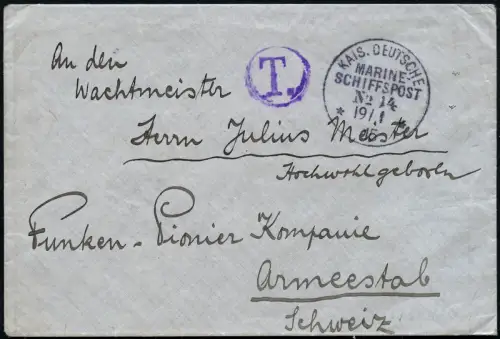 An den
Wachtmeister
T.
KAIS. DEUTSCHE
MARINE-
SCHIFFSPOST
No 14
* 19/1
Herrn Julius Meister
Hochwohlgeboren
Funken-Pionier Kompanie
Armeestab
Schweiz